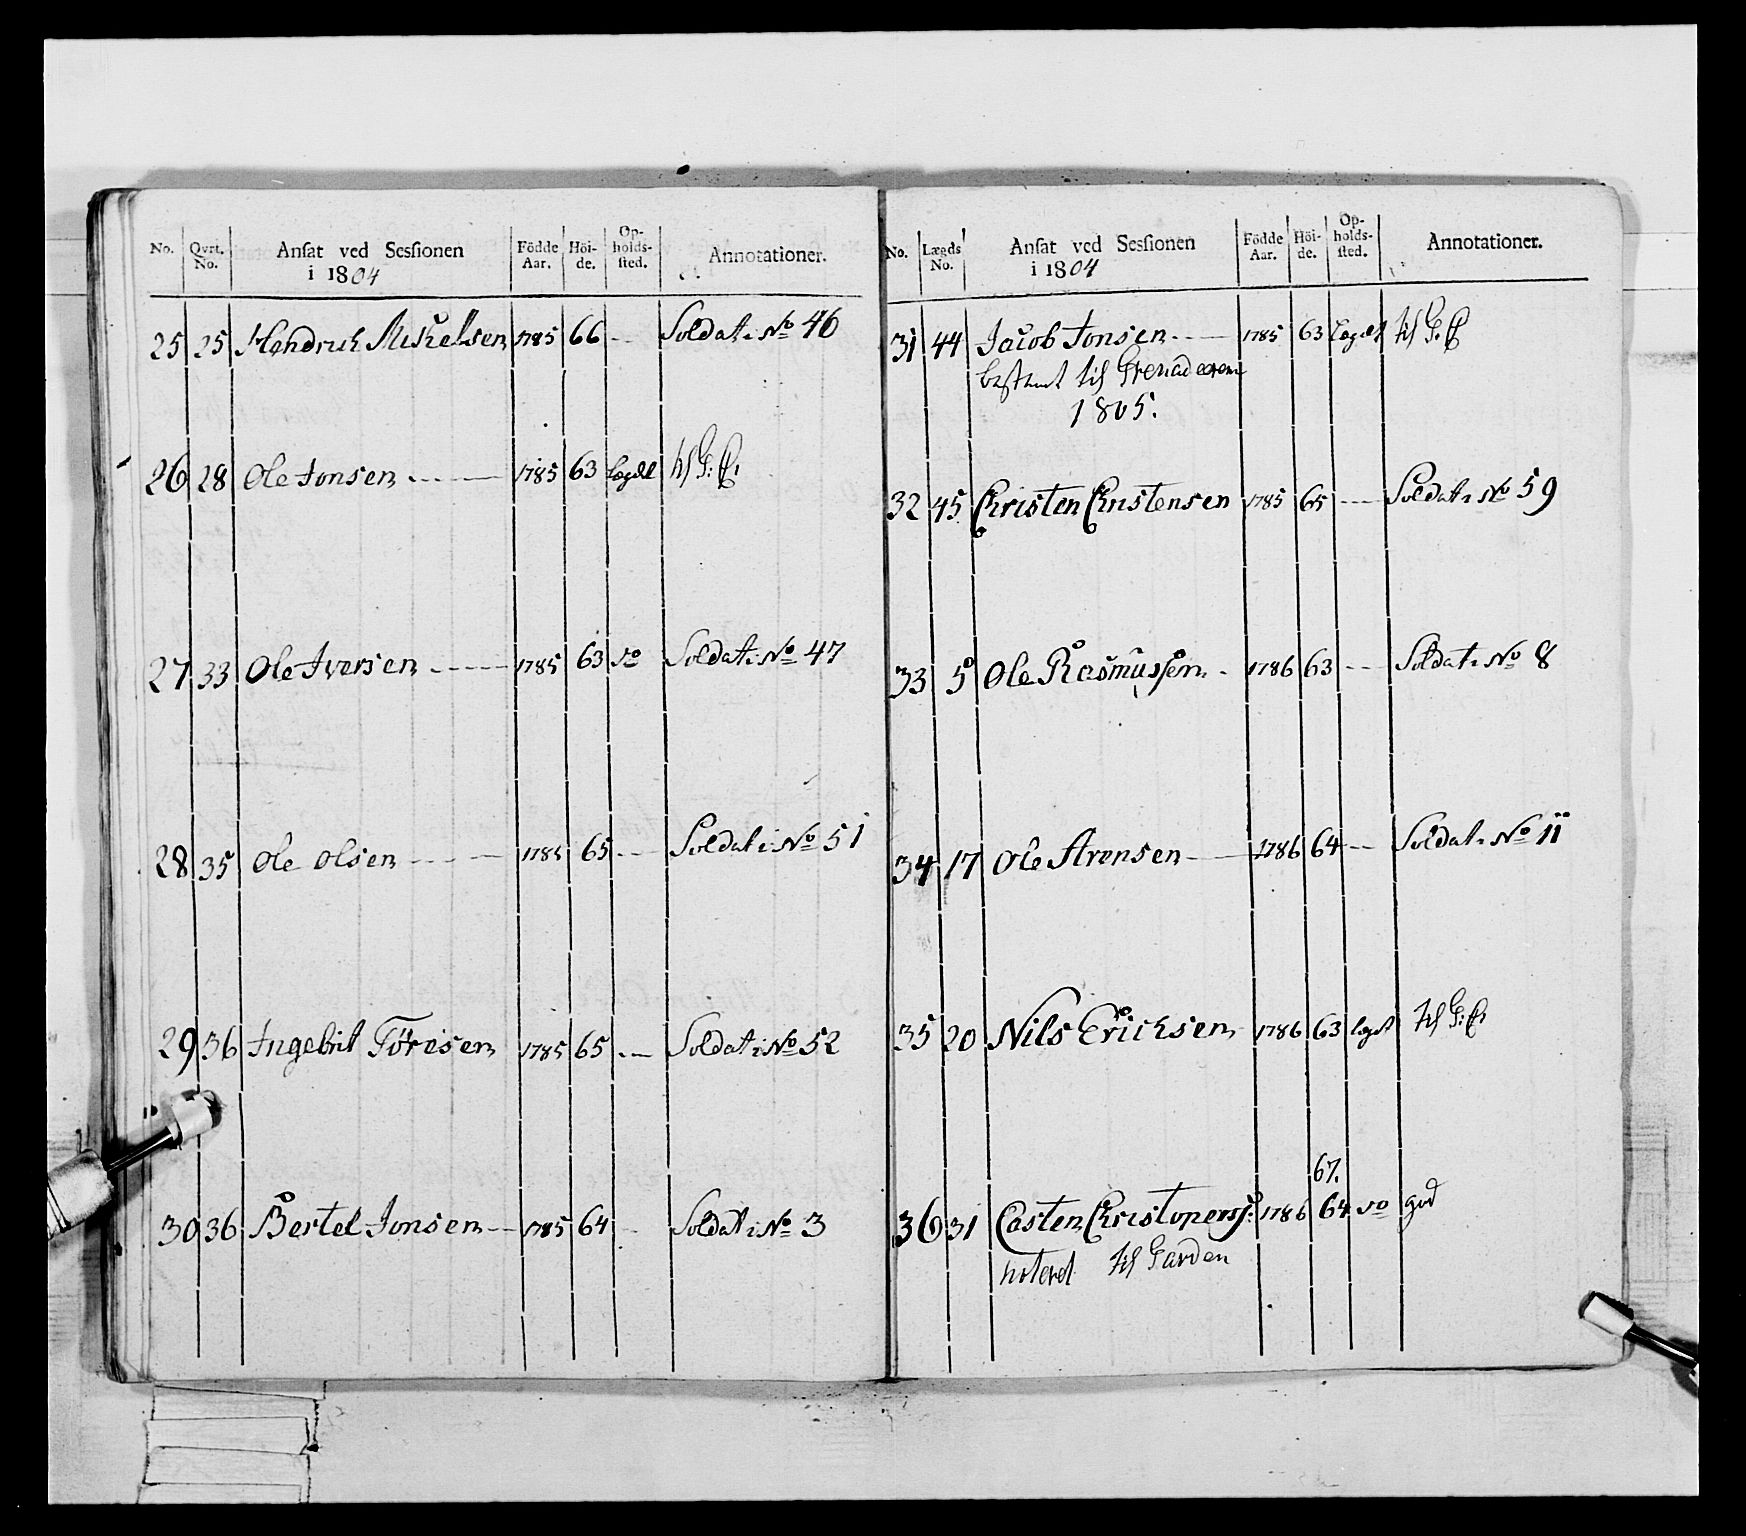 No. Qvrt. No. Ansat ved Sessionen i 1804 Födde Aar. Höi-de. Op-holds-sted. Annotationer.
25 25 Hendrich Mikelsen 1785 66 -- Soldat i No 46
26 28 Ole Jonsen 1785 63 lægdt til G: C:
27 33 Ole Iversen 1785 63 do Soldat i No 47
28 35 Ole Olsen 1785 65 -- Soldat i No 51
29 36 Ingebrit Töresen 1785 65 -- Soldat i No 52
30 36 Bertel Jonsen 1785 64 - Soldat i No 3
No. Lægds No. Ansat ved Sessionen i 1804 Födde Aar. Höi-de. Op-holds-sted. Annotationer.
31 44 Jacob Jonsen 1785 63 Lægdt til G: C
bestemt til Grenadererne
1805.
32 45 Christen Christensen 1785 65 -- Soldat i No 59
33 5 Ole Rasmussen 1786 63 -- Soldat i No 8
34 17 Ole Arensen 1786 64 -- Soldat i No 11
35 20 Nils Ericksen 1786 63 lægdt til G: C:
67.
36 31 Casten Christopers: 1786 64 do god
noteret til Garden